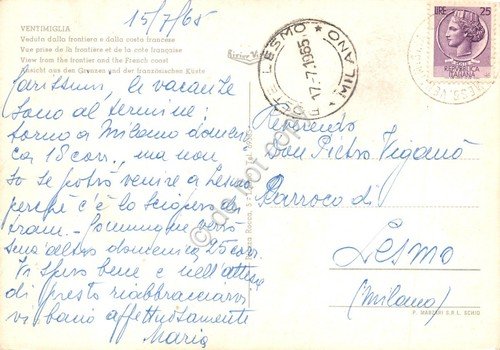 15/7/65
VENTIMIGLIA
Veduta dalla frontiera e dalla costa francese
Vue prise de la frontière et de la côte française
View from the frontier and the French coast
Ansicht aus den Grenzen und der französischen Küste
Carissimi, le vacanze
sono al termine:
torno a Milano domeni
ca 18 corr., ma non
so se potrò venire a Lesmo
perché c'è lo sciopero dei
tram. - Comunque verrò
senz'altro domenica 25 corr.
Vi spero bene e nell'attesa
di presto riabbracciarvi
vi bacio affettuosamente
Maria
POSTE LESMO
17.7.1965
* MILANO *
LIRE 25
REPUBBLICA
ITALIANA
Reverendo
Don Pietro Viganò
Parroco di
Lesmo
(Milano)
P. MARZARI S.R.L. SCHIO